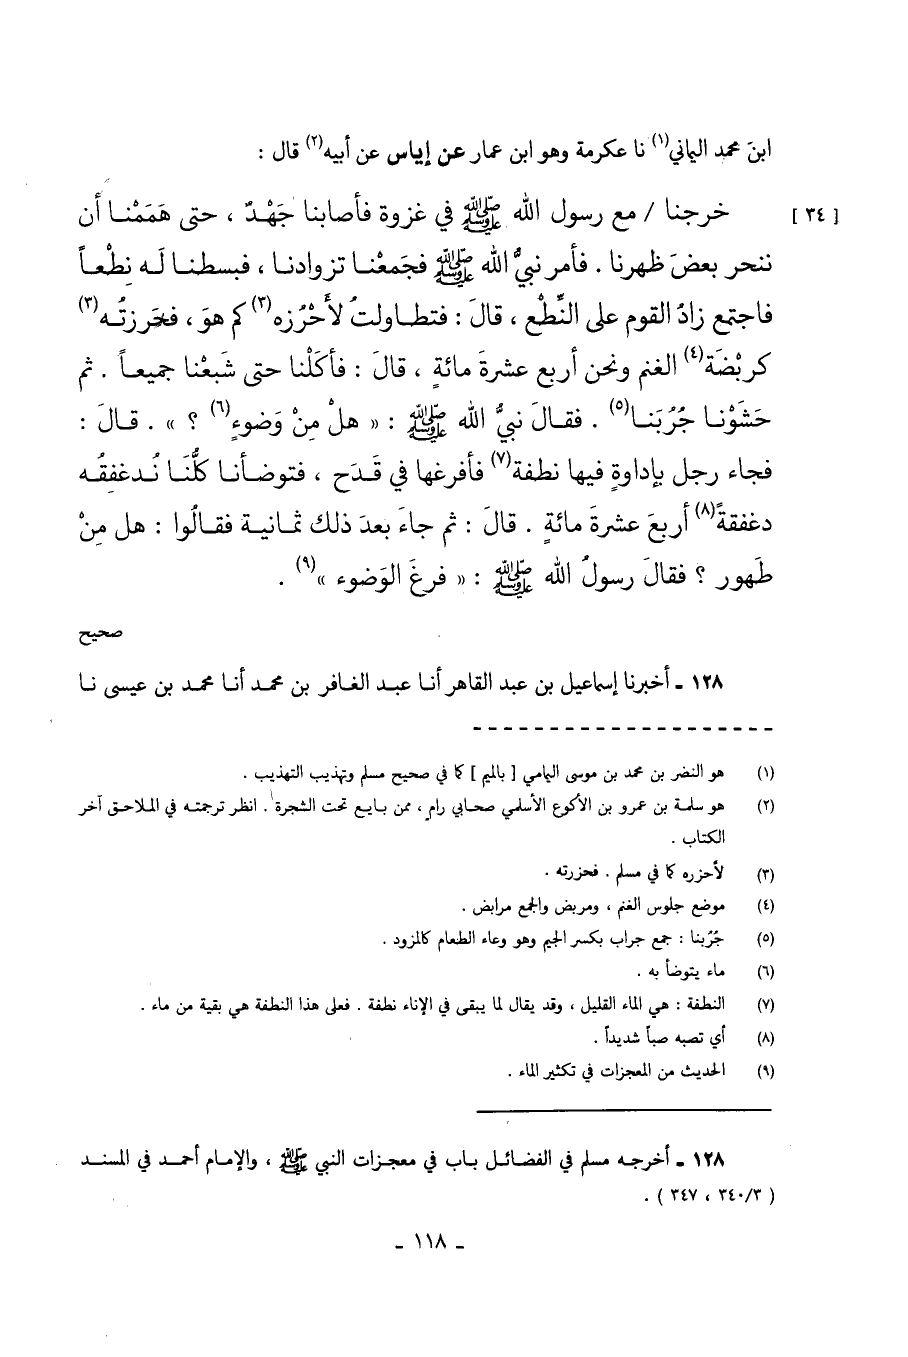 ابنَ محمد اليماني(١) نا عكرمة وهو ابن عمار عن إياس عن أبيه(٢) قال :
[ ٣٤ ] خرجنا / مع رسول الله ﷺ في غزوة فأصابنا جَهْدٌ ، حتى هَمَمْنا أن
ننحر بعضَ ظهرنا . فأمر نبيُّ الله ﷺ فجَمعْنا تزوادنا ، فبسطنا لَه نِطْعاً
فاجتمع زادُ القوم على النِّطْع ، قالَ : فتطاولتُ لأَحْرُزه(٣) كم هوَ ، فحَرزتُه(٣)
كربْضَة(٤) الغنم ونحن أربع عشرةَ مائةٍ ، قالَ : فأكَلْنا حتى شَبعْنا جميعاً . ثم
حَشَوْنا جُرُبَنا(٥) . فقالَ نبيُّ الله ﷺ : « هلْ مِنْ وَضوءٍ(٦) ؟ » . قالَ :
فجاء رجل بإداوةٍ فيها نطفة(٧) فأفرغها في قَدَح ، فتوضأنا كلُّنَا نُدغفقُه
دغفقةً(٨) أربعَ عشرةَ مائةٍ . قالَ : ثم جاءَ بعدَ ذلك ثمانية فقالُوا : هل مِنْ
طَهور ؟ فقالَ رسولُ الله ﷺ : « فرغَ الوَضوء »(٩) .
صحيح
١٢٨ ـ أخبرنا إسماعيل بن عبد القاهر أنا عبد الغافر بن محمد أنا محمد بن عيسى نا
(١) هو النضر بن محمد بن موسى اليامي [ بالميم ] كما في صحيح مسلم وتهذيب التهذيب .
(٢) هو سلمة بن عمرو بن الأكوع الأسلمي صحابي رام ، ممن بايع تحت الشجرة . انظر ترجمته في الملاحق آخر
الكتاب .
(٣) لأحزره كما في مسلم . فحزرته .
(٤) موضع جلوس الغنم ، ومربض والجمع مرابض .
(٥) جُرُبنا : جمع جراب بكسر الجيم وهو وعاء الطعام كالمزود .
(٦) ماء يتوضأ به .
(٧) النطفة : هي الماء القليل ، وقد يقال لما يبقى في الإناء نطفة . فعلى هذا النطفة هي بقية من ماء .
(٨) أي تصبه صباً شديداً .
(٩) الحديث من المعجزات في تكثير الماء .
١٢٨ ـ أخرجه مسلم في الفضائل باب في معجزات النبي ﷺ ، والإمام أحمد في المسند
( ٣٤٠/٣ ، ٣٤٧ ) .
ـ ١١٨ ـ